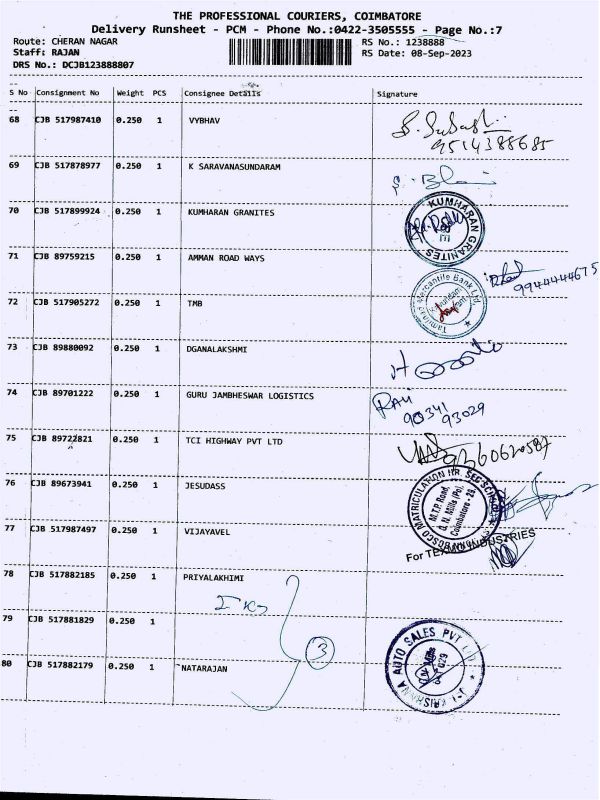 THE PROFESSIONAL COURIERS, COIMBATORE
Delivery Runsheet - PCM - Phone No.:0422-3505555 - Page No.:7
Route: CHERAN NAGAR RS No.: 1238888
Staff: RAJAN RS Date: 08-Sep-2023
DRS No.: DCJB123888807
S No Consignment No Weight PCS Consignee Details Signature
68 CJB 517987410 0.250 1 VYBHAV
9514388685
69 CJB 517878977 0.250 1 K SARAVANASUNDARAM
70 CJB 517899924 0.250 1 KUMHARAN GRANITES
KUMHARAN GRANITES
71 CJB 89759215 0.250 1 AMMAN ROAD WAYS
9944444675
72 CJB 517905272 0.250 1 TMB
Tamilnad Mercantile Bank Ltd.
73 CJB 89880092 0.250 1 DGANALAKSHMI
74 CJB 89701222 0.250 1 GURU JAMBHESWAR LOGISTICS
RAM
90341
93029
75 CJB 89722821 0.250 1 TCI HIGHWAY PVT LTD
9360620587
76 CJB 89673941 0.250 1 JESUDASS
BOSCO MATRICULATION HR SEC SCHOOL
M.T.P. Road,
G. N. Mills (Po),
Coimbatore - 29
77 CJB 517987497 0.250 1 VIJAYAVEL
INDUSTRIES
78 CJB 517882185 0.250 1 PRIYALAKHIMI
79 CJB 517881829 0.250 1
3
80 CJB 517882179 0.250 1 NATARAJAN
KRISHNA AUTO SALES PVT LTD